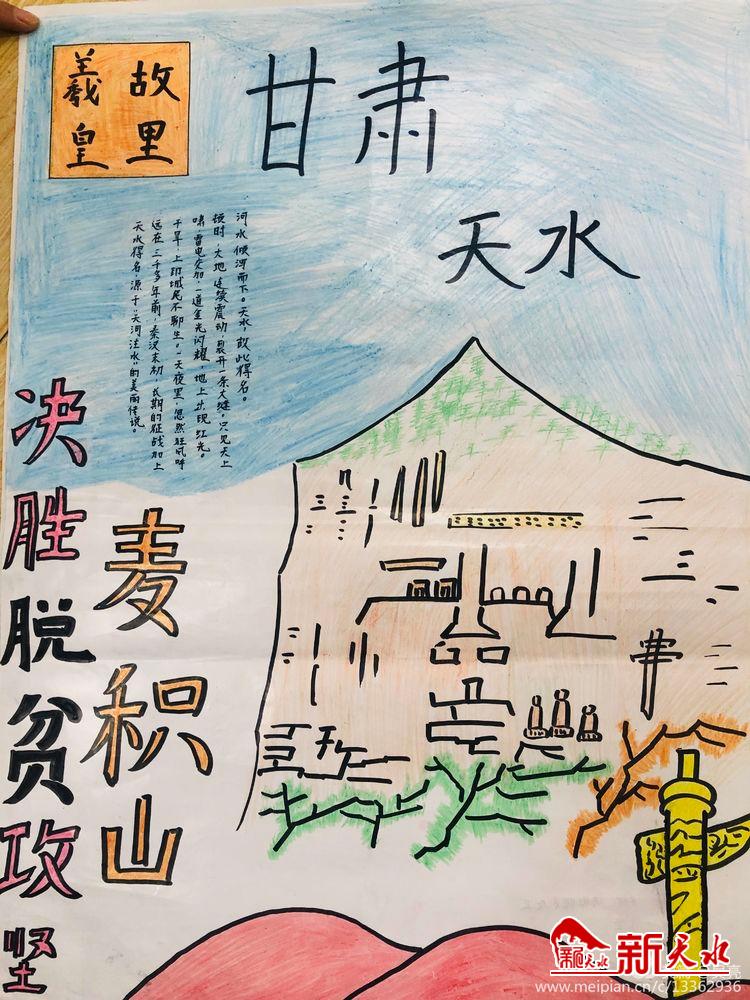 羲皇
故里
甘肃
天水
天水得名,源于“天河注水”的美丽传说。
远在三千多年前,秦汉末初,长期的征战加上
干旱,上邽城民不聊生。一天夜里,忽然狂风呼
啸,雷电交加,一道金光闪耀,地上出现红光。
顿时,大地连续震动,裂开一条大缝,只见天上
河水倾泻而下。天水,故此得名。
决胜脱贫攻坚
麦积山
新天水
www.meipian.cn/c/13362936